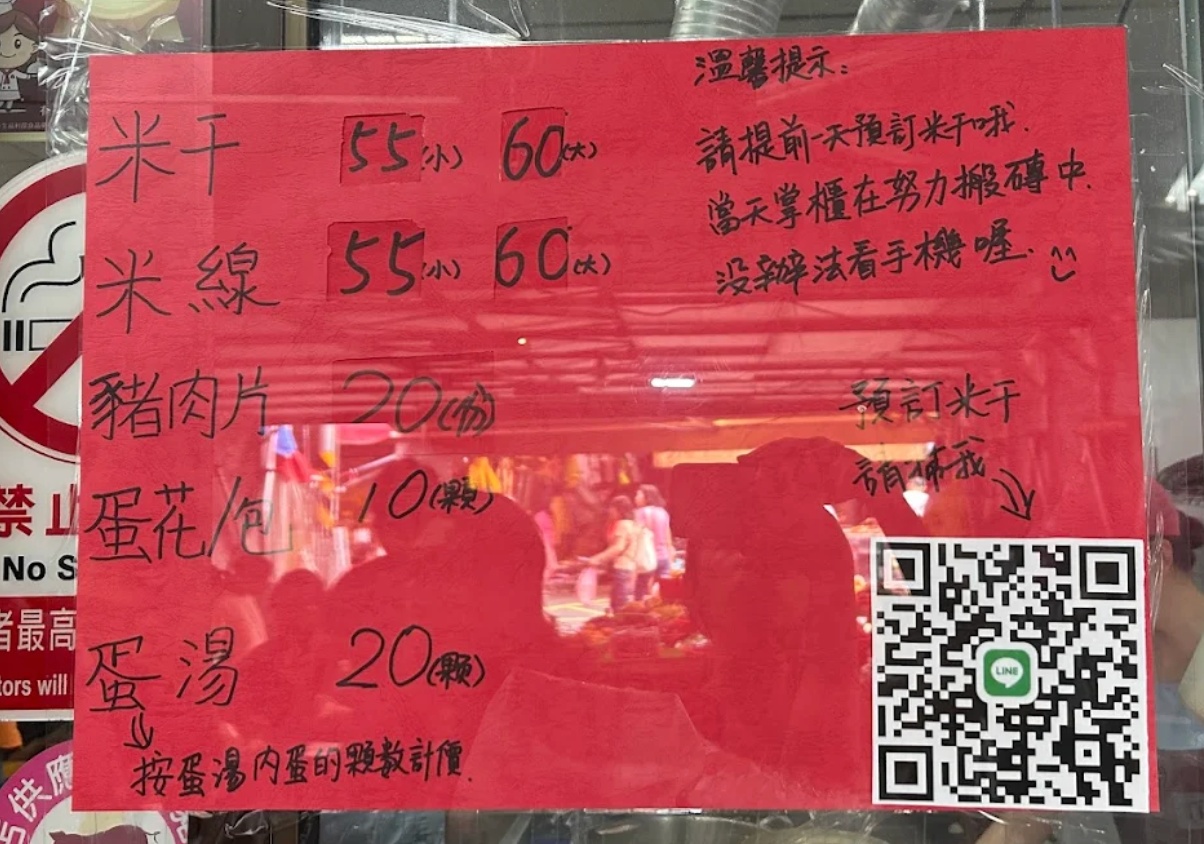 米干 55(小) 60(大)
米線 55(小) 60(大)
豬肉片 20(份)
蛋花/包 10(顆)
蛋湯 20(顆)
按蛋湯內蛋的顆數計價.
溫馨提示:
請提前一天預訂米干哦.
當天掌櫃在努力搬磚中.
沒辦法看手機喔.
預訂米干
請佈我
LINE
禁止
No S
者最高
tors will
供應